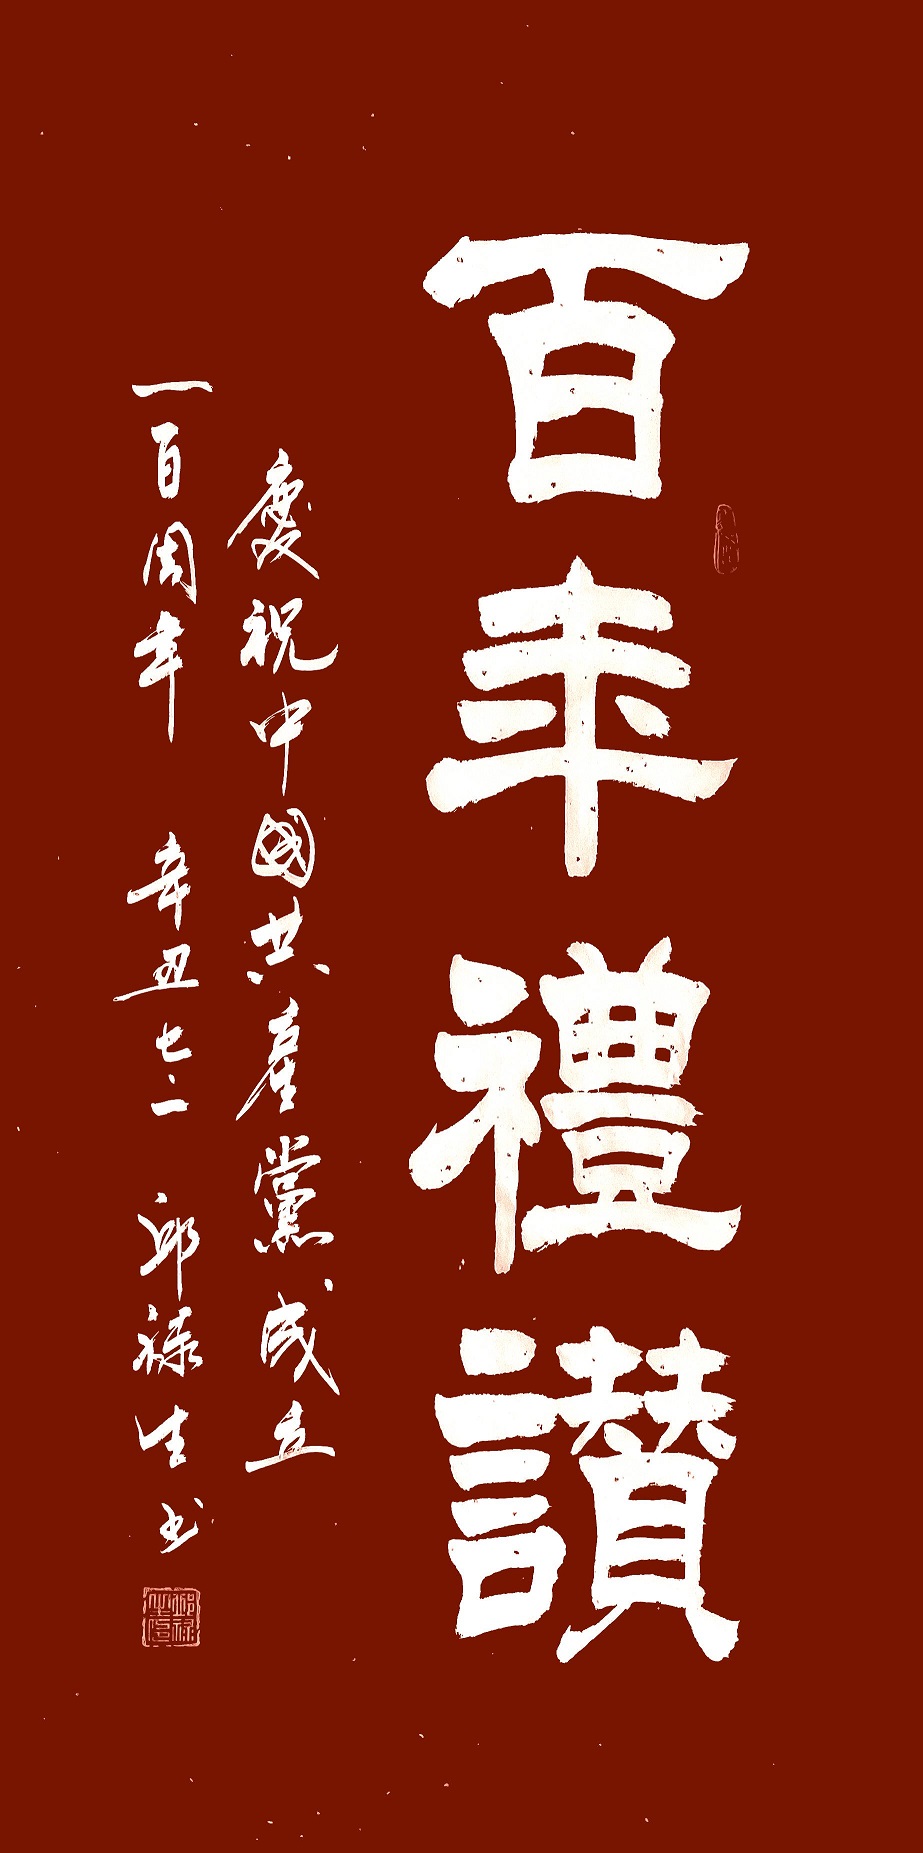 百年禮讃
慶祝中國共產黨成立
一百周年 辛丑七·一 邱禄生书